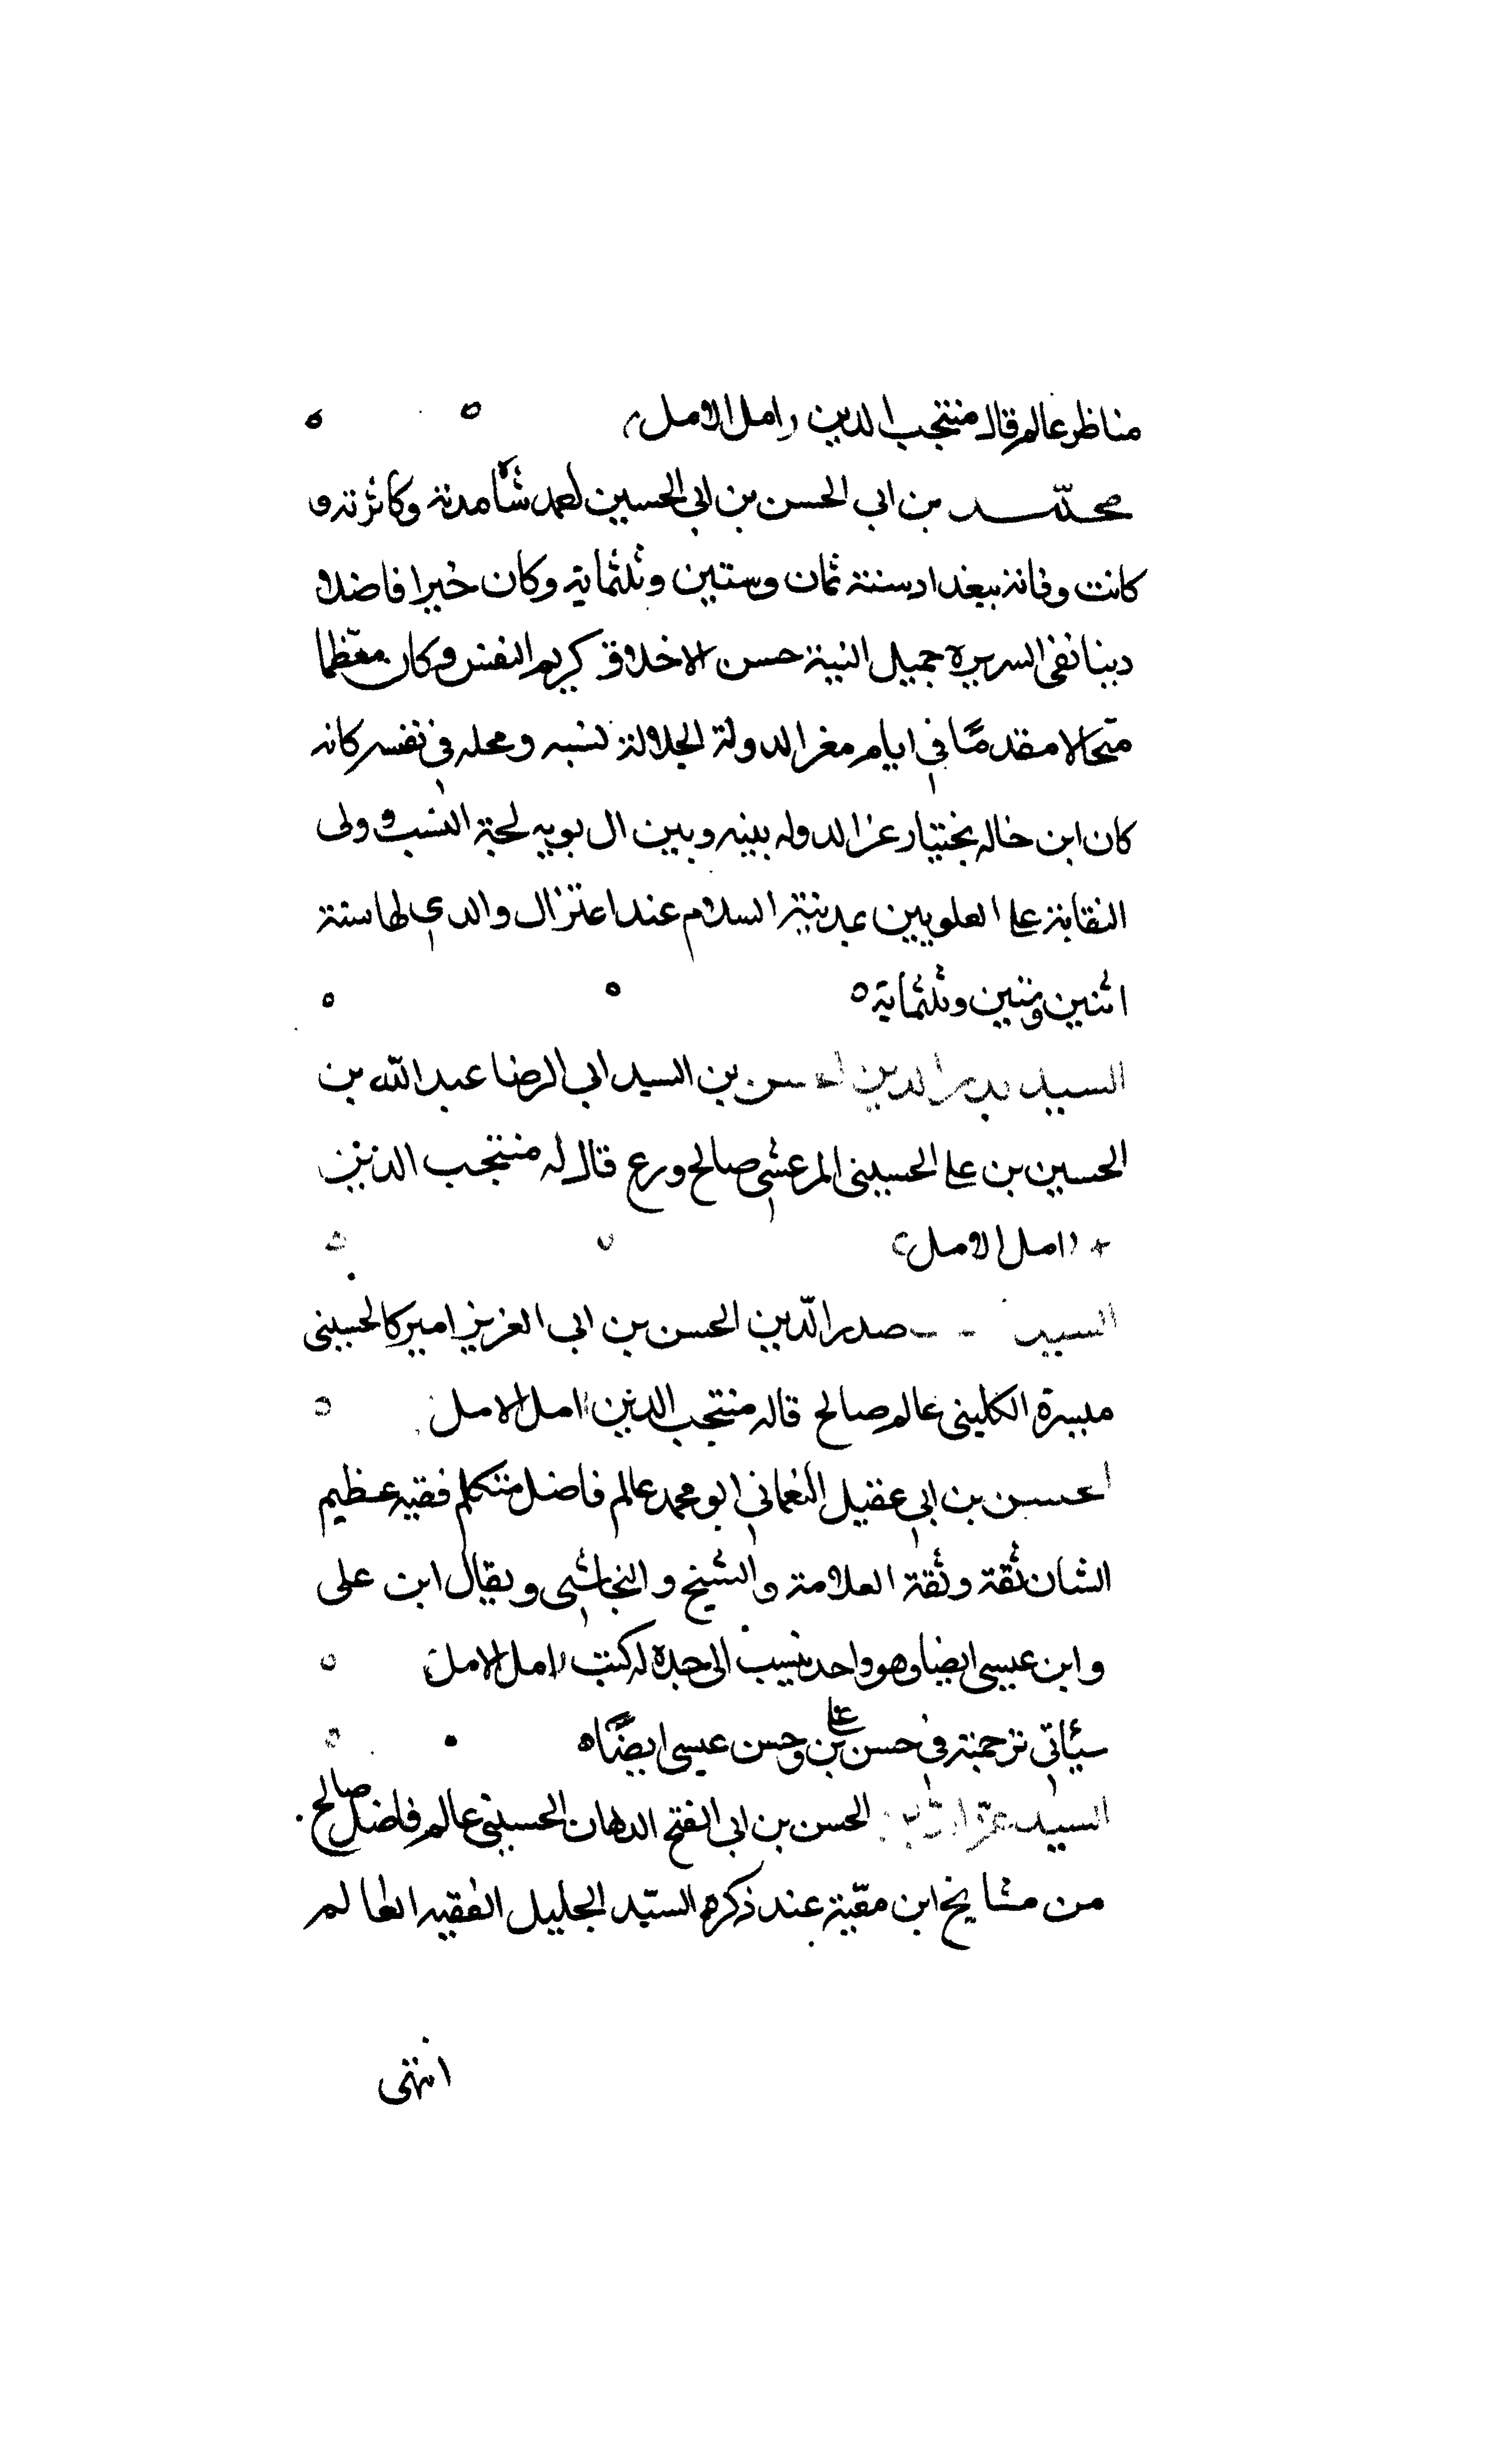 مناظر عالم قاله منتجب الدين (امل الامل)
محمد بن ابي الحسن بن ابي الحسين لعمد مدته وكاثرته و
كانت وفاته ببغداد سنة ثمان وستين وثلثماية وكان خيرا فاضلا
دينا نقي السريرة جميل النية حسن الاخلاق كريم النفس وكان معظما
متحالا مقدمًا في ايام مغر الدولة الجلالة نسبه ومحله في نفسه كانه
كان ابن خاله بختيار عز الدوله بينه وبين ال بويه لحجة النسب و ولى
النقابة على العلويين بمدينة السلام عند اعتزال والدي لها سنة
اثنين وستين وثلثماية
السيد بدر الدين الحسن بن السيد ابي الرضا عبد الله بن
الحسين بن على الحسيني المرعشي صالح ورع قال له منتجب الدين
(امل الامل)
السيد صدر الدّين الحسن بن ابي العزيز اميركا لحسيني
ميسرة الكليني عالم صالح قاله منتجب الدين (امل الامل
الحسن بن ابي عقيل النعماني ابو محمد عالم فاضل متكلم فقيه عظيم
الشان ثقة وثقة العلامة والشيخ والنجاشي ويقال ابن على
وابن عيسى ايضا وهو واحد ينسب الى جده له كتب (امل الامل
سيأتي ترجمته في حسن بن على وحسن عيسى ايضًا
السيد عز الدين الحسن بن ابي الفتح الدهان الحسيني عالم فاضل صالح
من مشايخ ابن معّية عند ذكره السيّد الجليل الفقيه العالم
انتهى